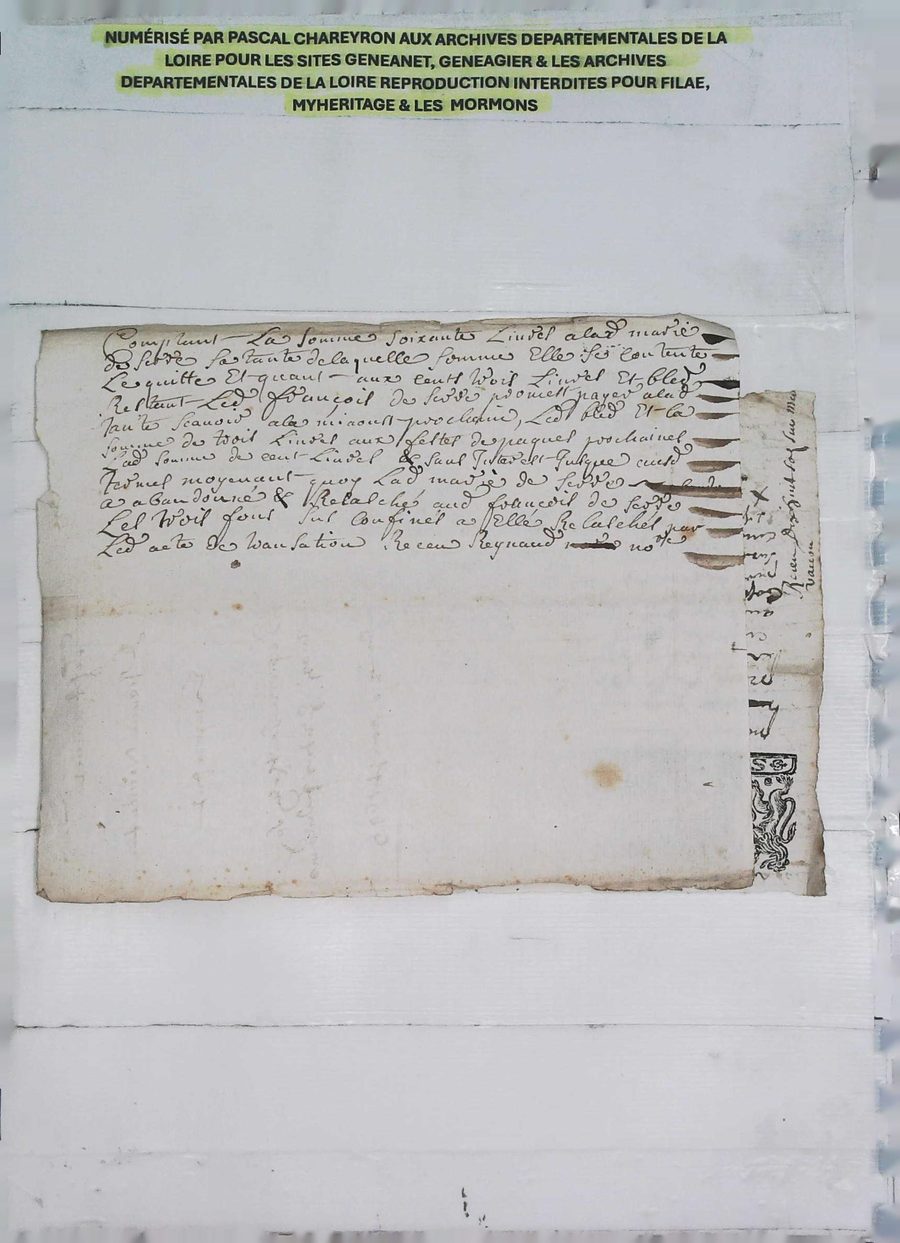 NUMÉRISÉ PAR PASCAL CHAREYRON AUX ARCHIVES DEPARTEMENTALES DE LA
LOIRE POUR LES SITES GENEANET, GENEAGIER & LES ARCHIVES
DEPARTEMENTALES DE LA LOIRE REPRODUCTION INTERDITES POUR FILAE,
MYHERITAGE & LES MORMONS
Comptant La somme soixante Livres a lad marie
de serre sa tante de laquelle somme Elle se contente
Le quitte Et quant aux cents trois Livres Et bled
Restant Led françois de serre promet payer a lad
tante scavoir a la mi aoust prochaine, Led bled Et la
somme de trois Livres aux festes de paques prochaines
lad somme de cent Livres & sans Interest Jusque ausd
termes moyenant quoy Lad marie de serre
a abandonné & Relasché aud francois de serre
Les trois fons sus confines a Elle Relasches par
Led acte de transation Receu Reynaud nore